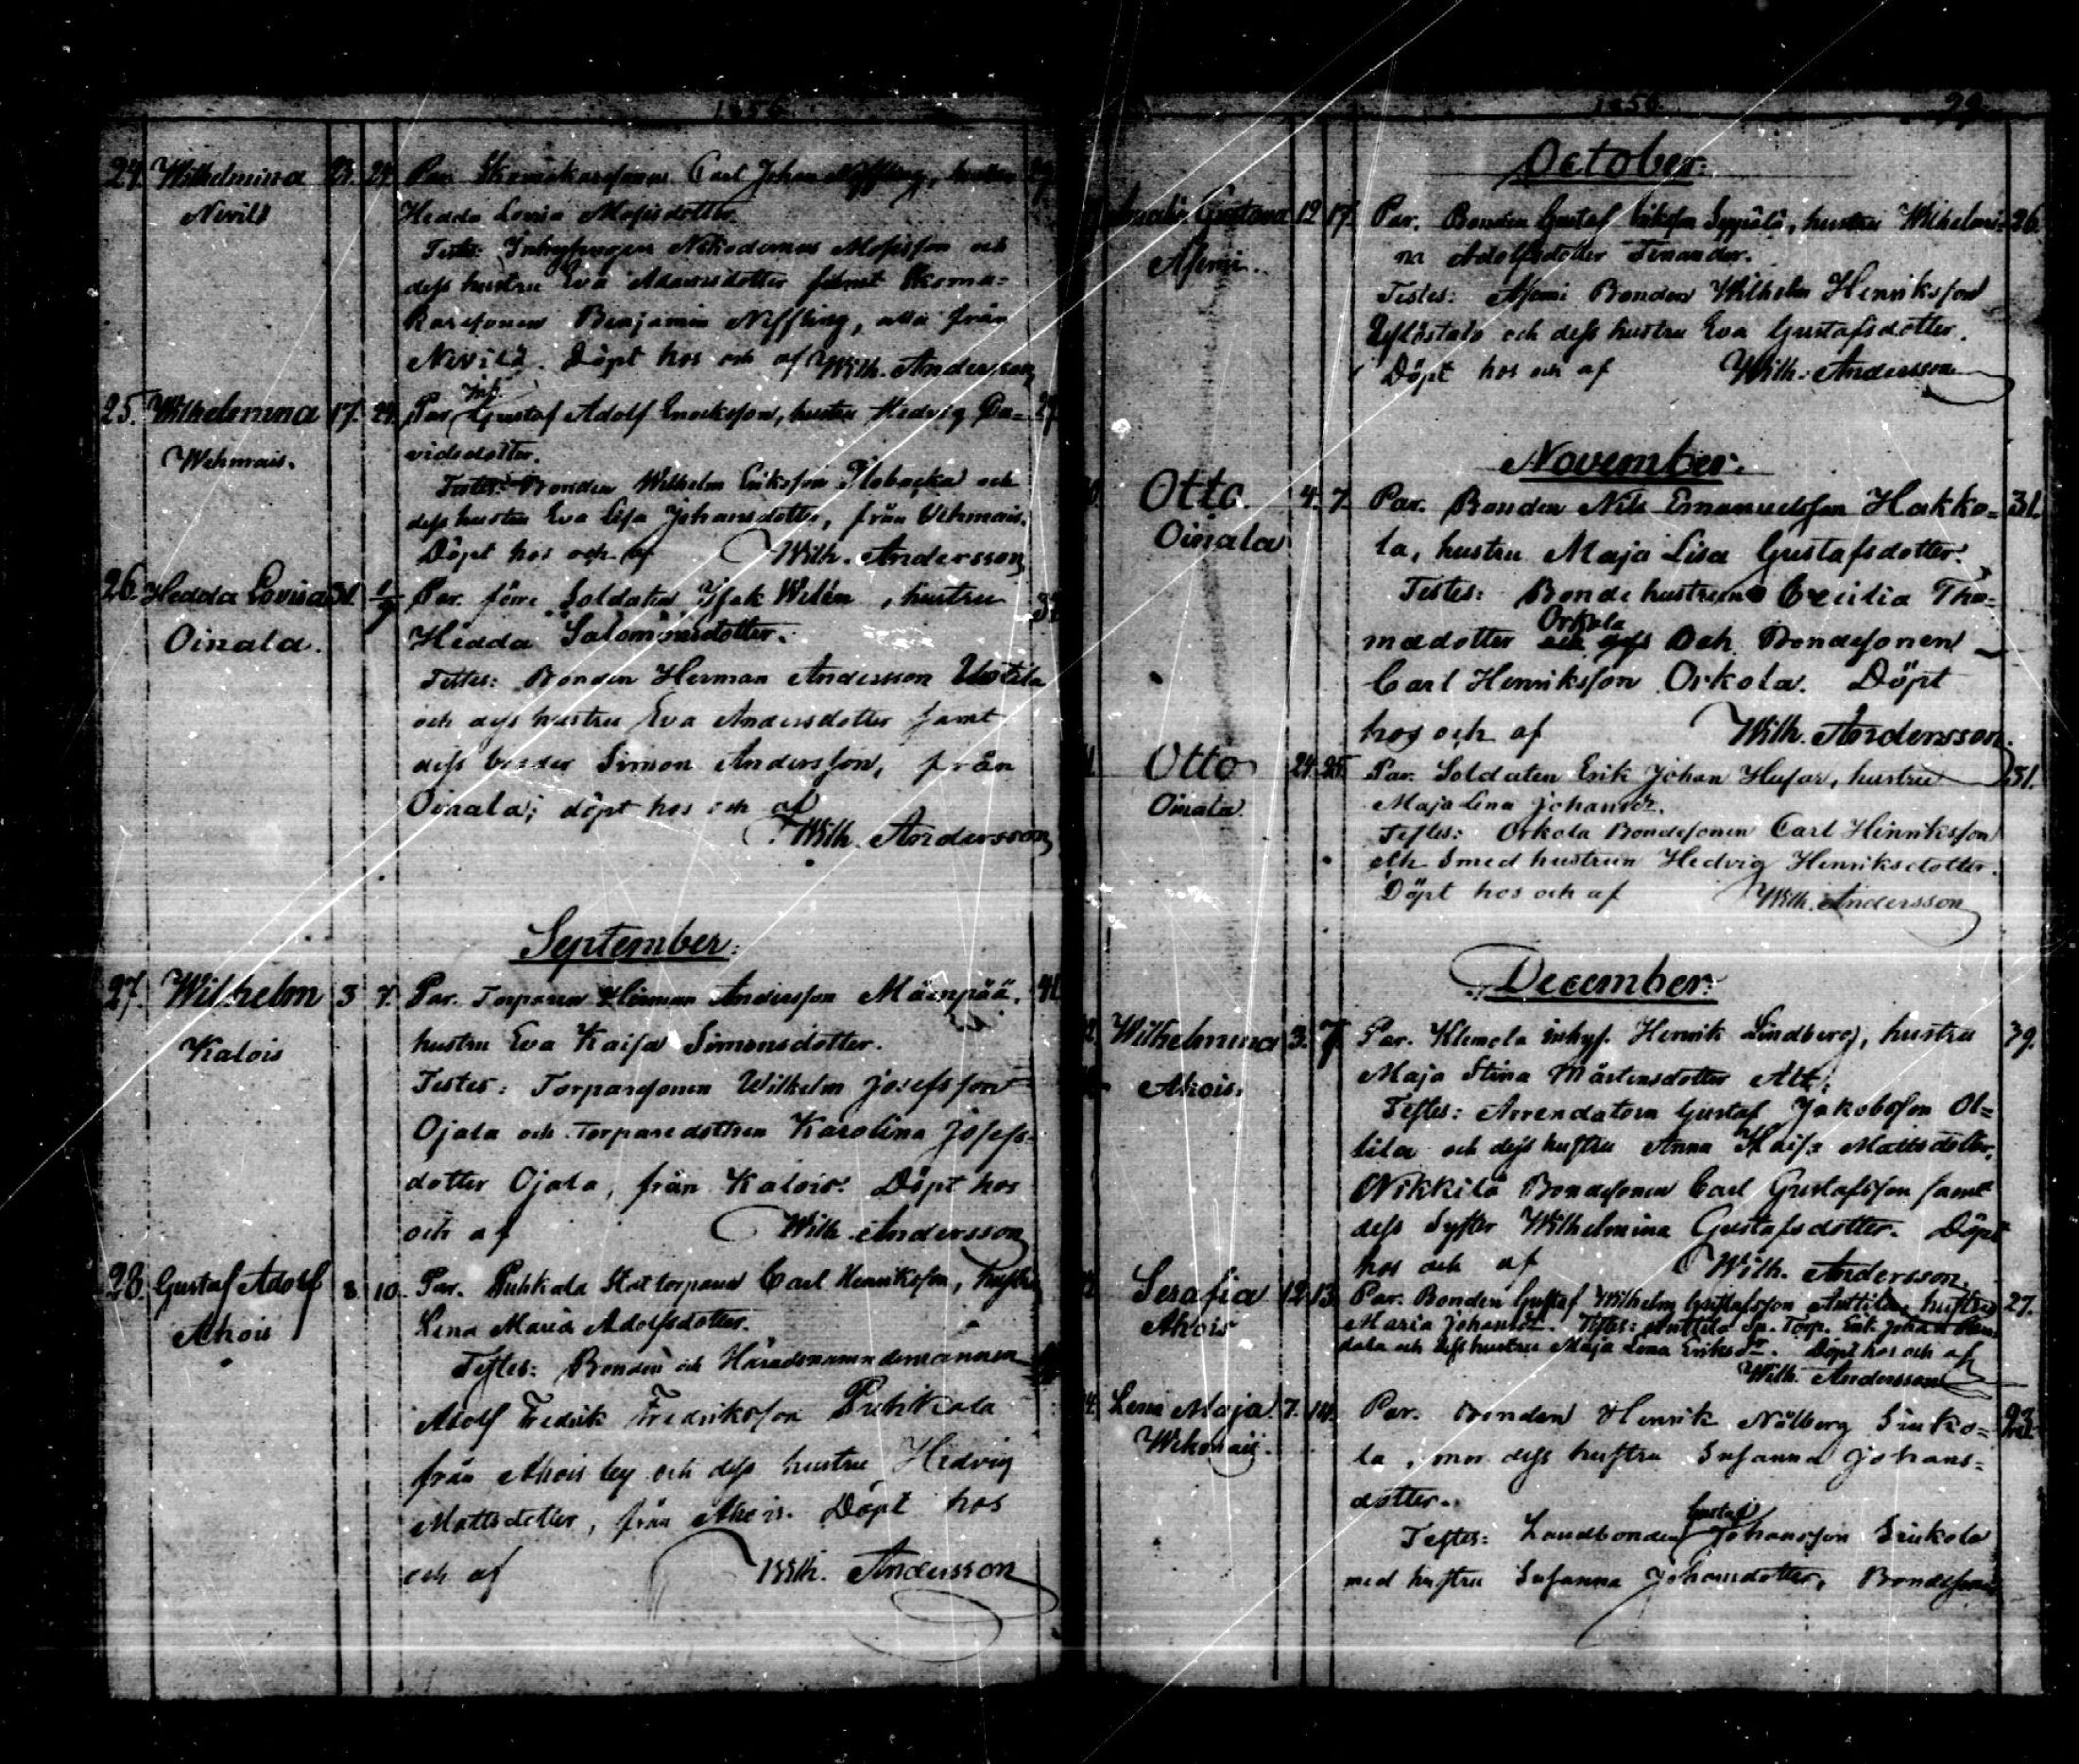 1856
24. Wilhelmina 21. 24. Par. Carl Johan Neffling, hustru
Nevilä
Hedda Lovisa Mosisdotter
Testes: Nikodemus Mosisson och
dess hustru Eva Adamsdotter samt Skoma=
karesonen Benjamin Neffling, alla från
Nevilä. Döpt hos och af Wilh. Andersson
25. Wilhelmina 17. 24. Par. Inh. Gustaf Adolf Enoksson, hustru Hedvig Da= 27
Wehmais.
vidsdotter.
Testes: Bonden Wilhelm Eriksson och
dess hustru Eva Lisa Johansdotter, från Vehmais.
Döpt hos och af Wilh. Andersson
26. Hedda Lovisa 31. 1/9 Par. förre Soldaten Isak Welin, hustru
Oinala.
Hedda Salomonsdotter.
Testes: Bonden Herman Andersson Uotila
och dess hustru Eva Andersdotter samt
dess broder Simon Andersson, från
Oinala; döpt hos och af
Wilh. Andersson
September.
27. Wilhelm 3 7. Par. Torparen Herman Andersson Mäenpää, 41
Kalois
hustru Eva Kaisa Simonsdotter.
Testes: Torparesonen Wilhelm Josefsson
Ojala och Torparedottren Karolina Josefs=
dotter Ojala, från Kalois. Döpt hos
och af Wilh. Andersson
28. Gustaf Adolf 8. 10. Par. Puhkala Carl Henriksson, hustru
Ahois
Lena Maria Adolfsdotter.
Testes: Bonden och Häradsnämndemannen
Adolf Fredrik Fredriksson Puhkala
från Ahois by och dess hustru Hedvig
Mattsdotter, från Ahois. Döpt hos
och af Wilh. Andersson
1856 99
October.
Gustava 12 17. Par. Bonden Gustaf Eriksson Seppälä, hustru Wilhelmi= 26.
na Adolfsdotter Tenander.
Testes: Bonden Wilhelm Henriksson
och dess hustru Eva Gustafsdotter.
Döpt hos och af Wilh. Andersson
November.
Otto. 4. 7. Par. Bonden Nils Emanuelsson Hakko= 31.
Oinala
la, hustru Maja Lisa Gustafsdotter.
Testes: Bonde hustrun Cecilia Tho=
Orkola
madotter och Bondesonen
Carl Henriksson Orkola. Döpt
hos och af Wilh. Andersson.
Otto 24. 25. Par. Soldaten Erik Johan Husar, hustru 31.
Oinala.
Maja Lena Johansdr.
Testes: Orkola Bondesonen Carl Henriksson
och Smed hustrun Hedvig Henriksdotter.
Döpt hos och af Wilh. Andersson
December.
Wilhelmina 3. 7. Par. Klemola inhys. Henrik Lindberg, hustru 39.
Ahois.
Maja Stina Mårtensdotter Alt.
Testes: Arrendatorn Gustaf Jakobsson Ol=
lila och dess hustru Anna Kaisa Mattsdotter,
Nikkilä Bondesonen Carl Gustafsson samt
dess Syster Wilhelmina Gustafsdotter. Döpt
hos och af Wilh. Andersson.
Serafia 12. 13. Par. Bonden Gustaf Wilhelm Gustafsson Anttila, hustru 27.
Ahois
Maria Johansdr. Testes: Anttila Torp. Erik Johan
och dess hustru Maja Lena Eriksdr. Döpt hos och af
Wilh. Andersson
4. Lena Maja. 7. 14. Par. Bonden Henrik Nålberg Siuko= 23.
Wehmais.
la, mor dess hustru Susanna Johans=
dotter.
Gustaf
Testes: Landbonden Johansson Siukola
med hustru Susanna Johansdotter, Bondesonen